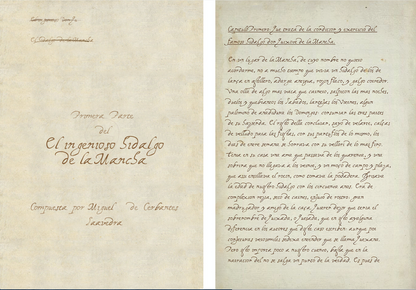 Primera Parte
del
El ingenioso Hidalgo
de la Mancha
Compuesta por Miguel de Cerbantes
Saavedra
Capitulo Primero Que trata de la condicion y exercicio del
famoso hidalgo don Quixote de la Mancha.
En un lugar de la Mancha, de cuyo nombre no quiero
acordarme, no a mucho tiempo que vivia un hidalgo de los de
lança en astillero, adarga antigua, rozin flaco, y galgo corredor.
Una olla de algo mas vaca que carnero, salpicon las mas noches,
duelos y quebrantos los Sabados, lantejas los Viernes, algun
palomino de añadidura los Domingos: consumian las tres partes
de su hazienda. El resto della concluian, sayo de velarte, calças
de velludo para las fiestas, con sus pantuflos de lo mesmo, los
dias de entre semana se honrava con su vellori de lo mas fino.
Tenia en su casa una ama que passava de los quarenta, y una
sobrina que no llegava a los veynte, y un moço de campo y plaça,
que assi ensillava el rozin, como tomava la podadera. Frisava
la edad de nuestro hidalgo con los cincuenta años. Era de
complexion rezia, seco de carnes, enjuto de rostro, gran
madrugador, y amigo de la caça. Quieren dezir que tenia el
sobrenombre de Quixada, o Quesada, que en esto ay alguna
diferencia en los autores que deste caso escriben: aunque por
conjeturas verosimiles se dexa entender que se llama Quixana.
Pero esto importa poco a nuestro cuento, basta que en la
narracion del no se salga un punto de la verdad. Es pues de